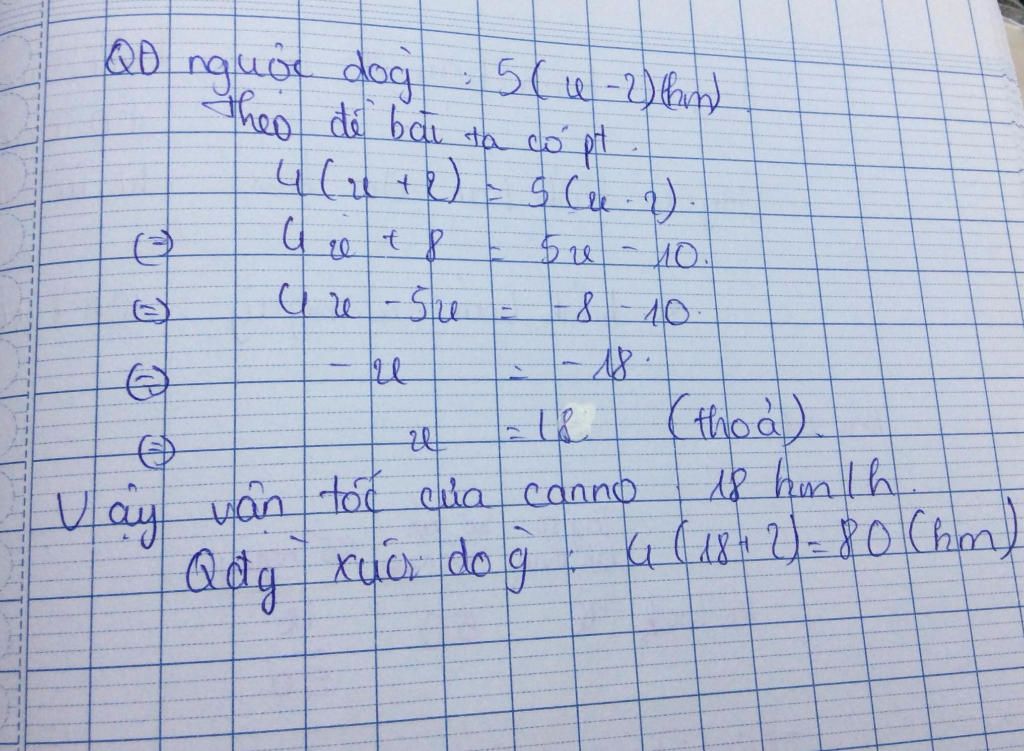 QĐ ngược dòg : 5(x - 2)(km)
Theo đề bài ta có pt.
4(x + 2) = 5(x - 2).
(=) 4x + 8 = 5x - 10.
(=) 4x - 5x = -8 - 10.
(=) - x = - 18.
(=) x = 18 (thoả).
Vậy vận tốc của canno 18 km/h.
Qđg xuôi dòg : 4(18 + 2) = 80 (km)